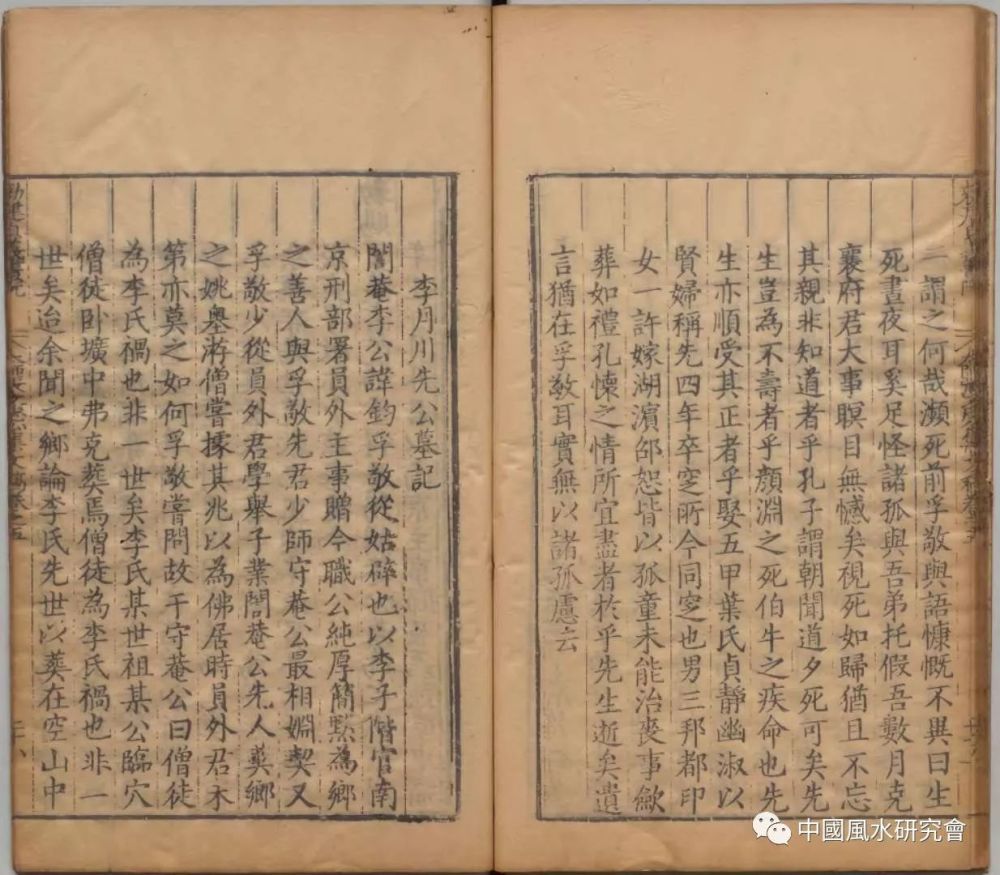 二謂之何哉瀕死前孚敬與語慷慨不異曰生
死晝夜耳奚足怪諸孤與吾弟托假吾數月克
襄府君大事瞑目無憾矣視死如歸猶且不忘
其親非知道者乎孔子謂朝聞道夕死可矣先
生豈為不壽者乎顏淵之死伯牛之疾命也先
生亦順受其正者乎娶五甲葉氏貞靜幽淑以
賢婦稱先四年卒窆所今同窆也男三邦都印
女一許嫁湖濵邵恕皆以孤童未能治喪事歛
葬如禮孔懐之情所宜盡者於乎先生逝矣遺
言猶在孚敬耳實無以諸孤慮云
李月川先公墓記
誾菴李公諱鈞孚敬從姑辟也以李子階官南
京刑部署員外主事贈今職公純厚簡默為鄉
之善人與孚敬先君少師守菴公最相婣契又
孚敬少從員外君學舉子業誾菴公先人𦵏鄉
之姚嶴游僧嘗據其兆以為佛居時員外君未
第亦莫之如何孚敬嘗問故于守菴公曰僧徒
為李氏禍也非一世矣李氏某世祖某公臨穴
僧徒卧壙中弗克𦵏焉僧徒為李氏禍也非一
世矣迨余聞之鄉論李氏先世以𦵏在空山中
中國風水研究會